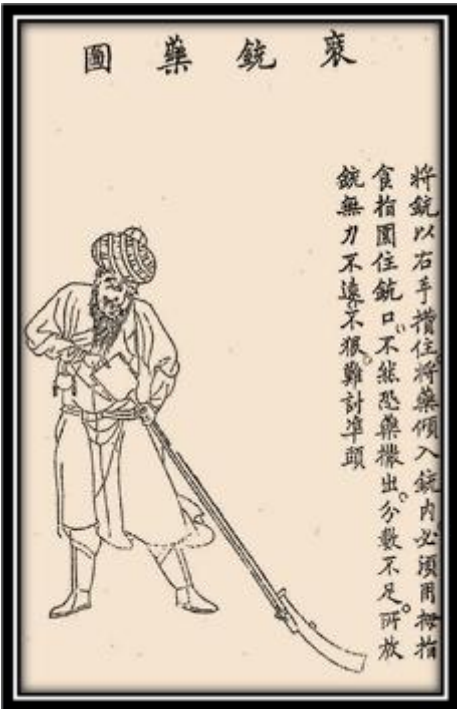 裒銃藥圖
將銃以右手攢住將藥傾入銃內必須用拇指
食指圈住銃口不然恐藥撒出分數不足所放
銃無力不遠不狠難討準頭